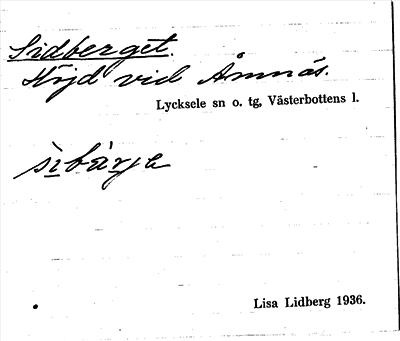 Sidberget.
Höjd vid Åmnäs.
Lycksele sn o. tg, Västerbottens l.
sìbàrje
Lisa Lidberg 1936.